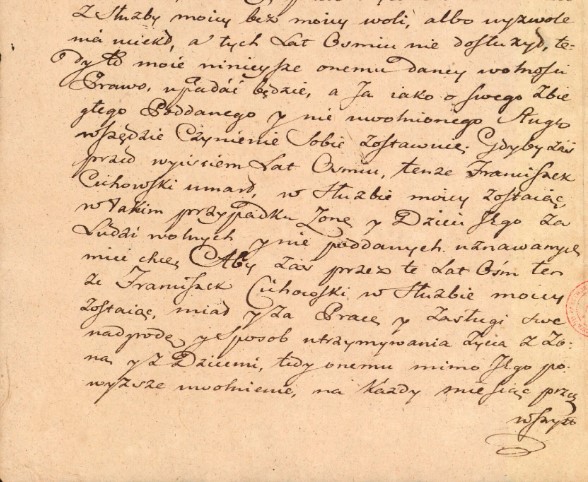 z Służby moiey bez moiey woli, albo wyzwole
nia uciekł, a tych Lat Ośmiu nie dosłużył, te-
dy to moie ninieysze onemu daney wolności
Prawo, upadać będzie, a Ja iako o swego Zbie
głego Poddanego y nie uwolnionego Sługę
wszędzie Czynienie Sobie zostawuię; Gdyby zaś
przed wyiściem Lat Ośmiu, tenże Franciszek
Cichowski umarł, w Służbie moiey zostaiąc,
w takim przypadku Żonę y Dzieci Jego za
Ludzi wolnych y nie poddanych uznawanych
mieć chcę. Aby zaś przez te Lat Ośm ten
że Franciszek Cichowski w Służbie moiey
zostaiąc, miał y za Pracę y Zasługi swe
nadgrodę y sposób utrzymywania Życia z Żo-
ną y z Dziećmi, tedy onemu mimo Jego po-
wyższe uwolnienie, na każdy miesiąc przez
wszyst